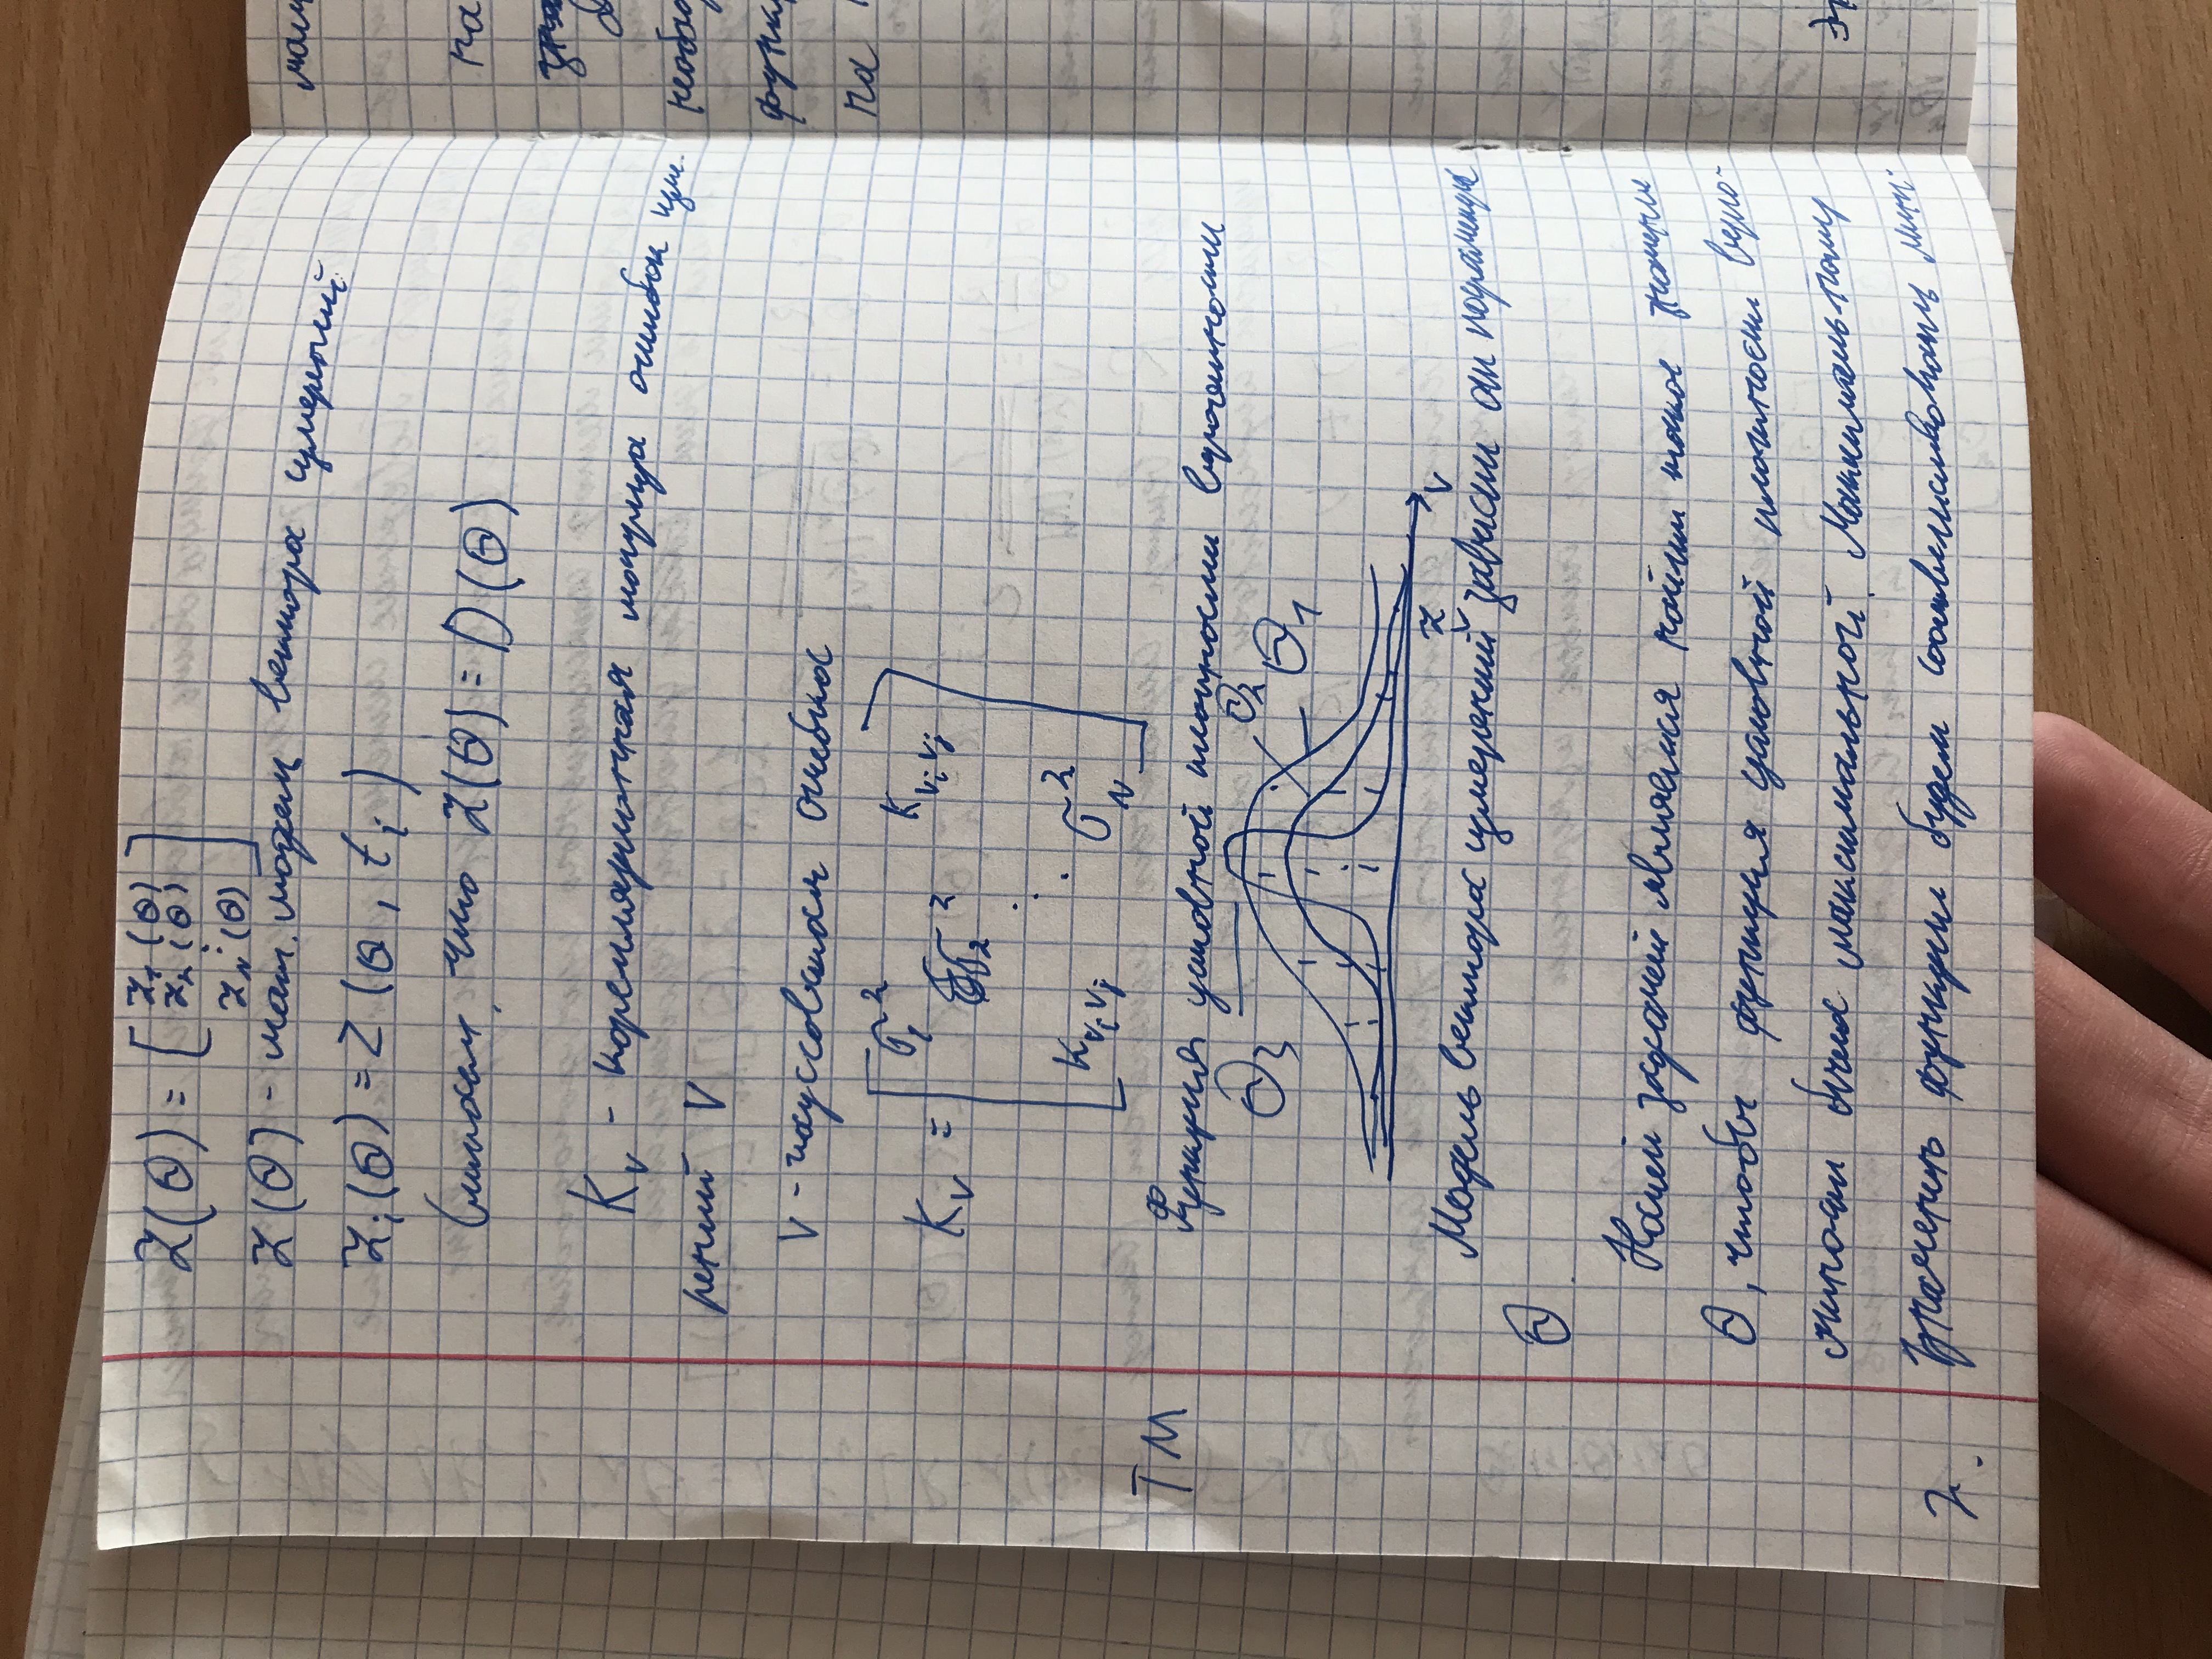 Z(Θ) = [ z₁(Θ)
z₂(Θ)
⋮
z_N(Θ) ]
Z(Θ) - мат. модель вектора измерений
Z_i(Θ) = Z(Θ, t_i)
Считаем, что Z(Θ) = D(Θ)
K_v - корелляционная матрица ошибок изме-
рений V
V - гауссовская ошибка
K_v = [ σ₁² K_{v_i v_j}
σ₂²
⋱
K_{v_i v_j} σ_N² ]
ТМ Функция условной плотности вероятности
Θ₃ Θ₂ Θ₁
Z V
Модель вектора измерений зависит от параметра
Θ.
Нашей задачей является найти такое значение
Θ, чтобы функция условной плотности веро-
ятности была максимальной. Максимальному
2. значению функции будет соответствовать мин-
мат
на
необхо
функц
на